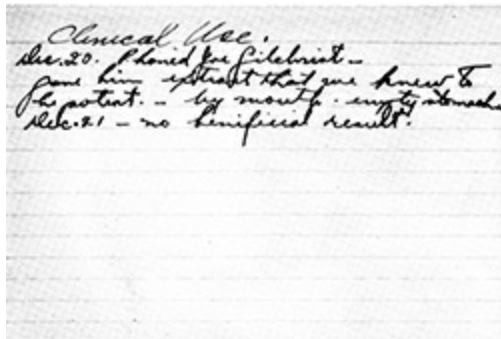 Clinical Use.
Dec. 20. Phoned Joe Gilchrist -
gave him extract that we knew to
be potent. - by mouth. empty stomach
Dec. 21 - no benificial result.